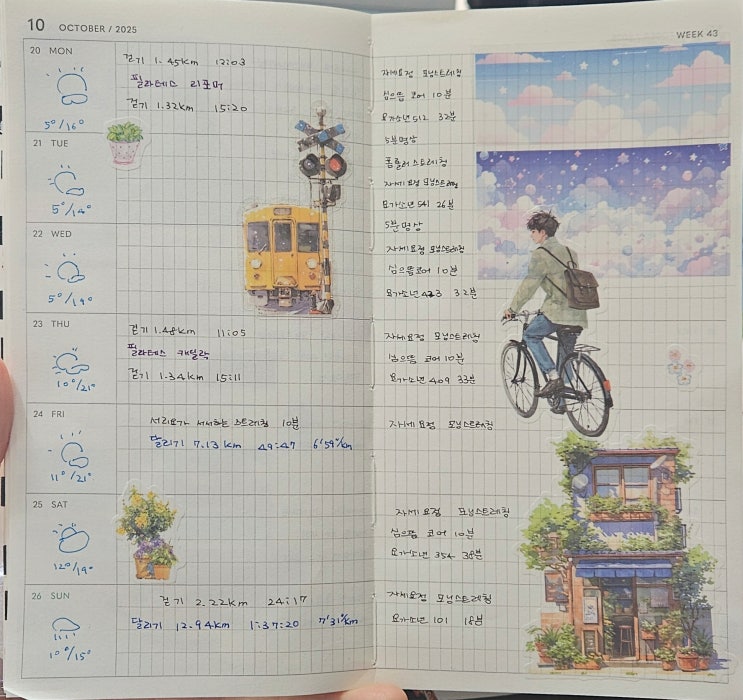 10 OCTOBER / 2025
20 MON
5°/16°
걷기 1.45km 12:03
필라테스 리포머
걷기 1.32km 15:20
21 TUE
5°/14°
22 WED
5°/19°
23 THU
10°/21°
걷기 1.48km 11:05
필라테스 캐딜락
걷기 1.34km 15:11
24 FRI
11°/21°
서리요가 서서하는 스트레칭 10분
달리기 7.13km 49:47 6'59"/km
25 SAT
12°/19°
26 SUN
10°/15°
걷기 2.22km 24:17
달리기 12.94km 1:37:20 7'31"/km
WEEK 43
자세요정 모닝스트레칭
심으뜸 코어 10분
요가소년 512 32분
5분명상
폼롤러스트레칭
자세요정 모닝스트레칭
요가소년 541 26분
5분명상
자세요정 모닝스트레칭
심으뜸코어 10분
요가소년 423 32분
자세요정 모닝스트레칭
심으뜸 코어 10분
요가소년 409 33분
자세요정 모닝스트레칭
자세요정 모닝스트레칭
심으뜸 코어 10분
요가소년 354 38분
자세요정 모닝스트레칭
요가소년 101 18분